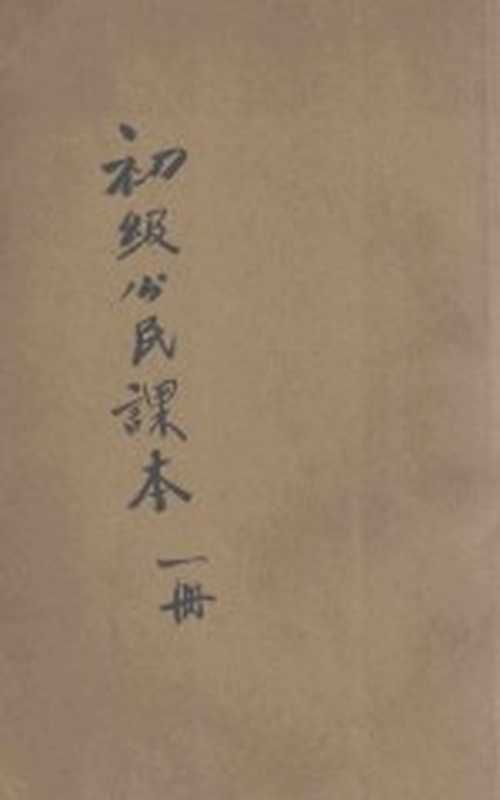 初級公民課本 一冊